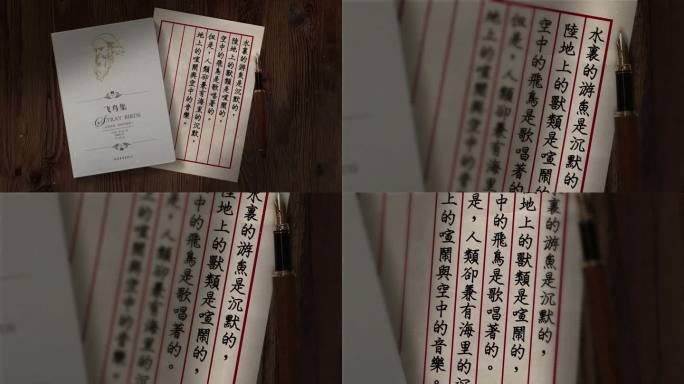 飞鸟集
STRAY BIRDS
水裏的游魚是沉默的，
陸地上的獸類是喧鬧的，
空中的飛鳥是歌唱著的。
但是，人類卻兼有海里的沉默，
地上的喧鬧與空中的音樂。
水裏的游魚是沉默的，
陸地上的獸類是喧鬧的，
空中的飛鳥是歌唱
但是，人類卻兼有海
地上的喧鬧與空
水裏的游魚是沉默的，
陸地上的獸類是喧鬧的，
中的飛鳥是歌唱著的。
是，人類卻兼有海里的沉
上的喧鬧與空中的音樂。
水裏的游魚是沉默的，
地上的獸類是喧鬧的，
中的飛鳥是歌唱著的。
是，人類卻兼有海里的沉
上的喧鬧與空中的音樂。